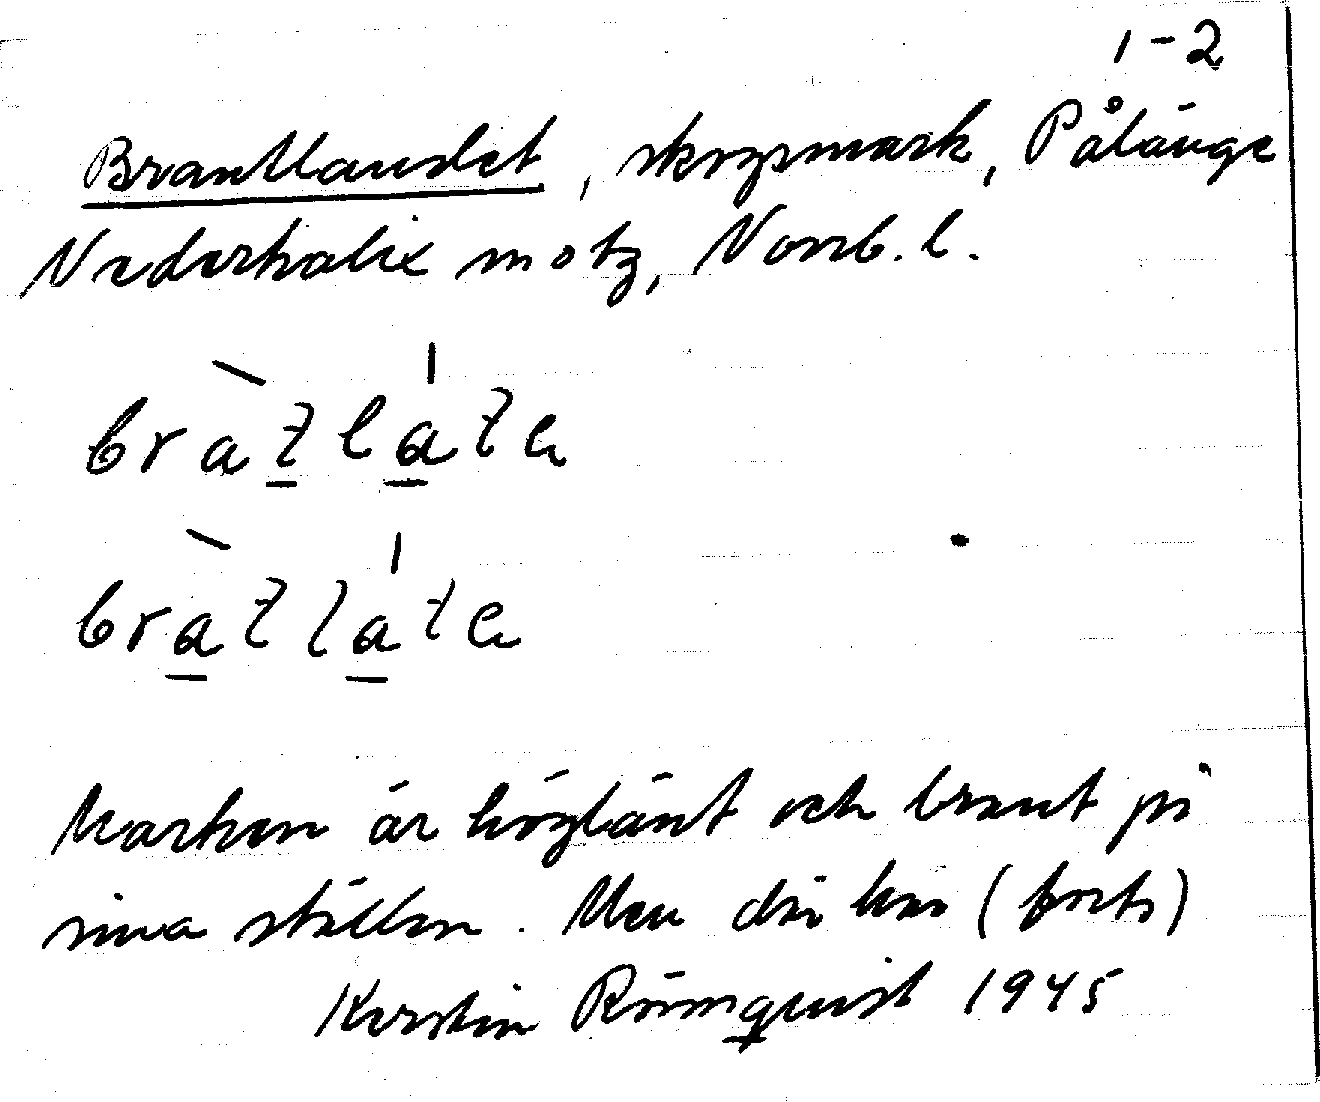 1-2
Brantlandet, skogsmark, Pålänge
Nederkalix motz, Norrb. l.
bratlata
bratlata
Marken är höglänt och brant på
sina ställen. Men där har (forts)
Kerstin Römquist 1945